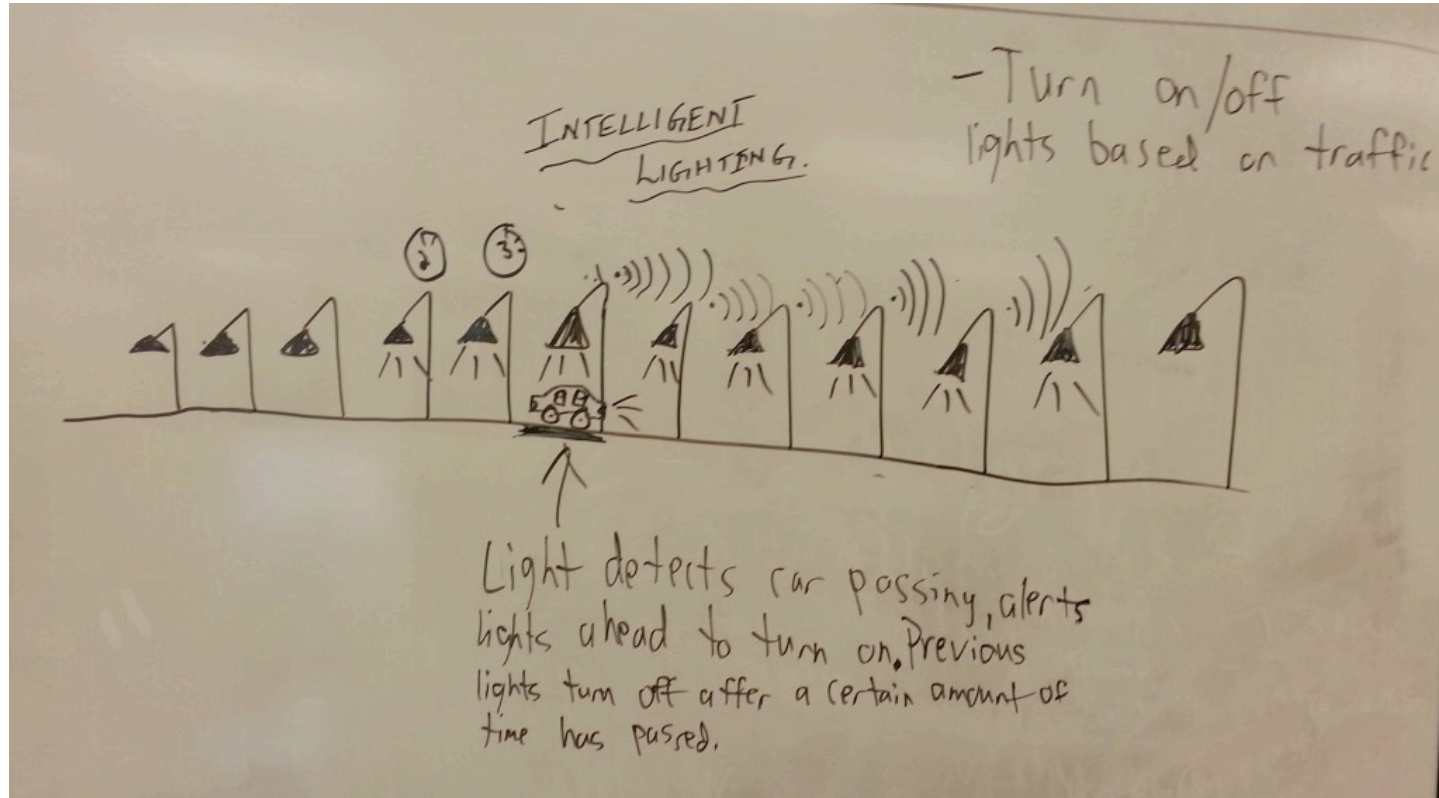 INTELLIGENT
LIGHTING.
- Turn on/off
lights based on traffic
2
3
Light detects car passing, alerts
lights ahead to turn on. Previous
lights turn off after a certain amount of
time has passed.